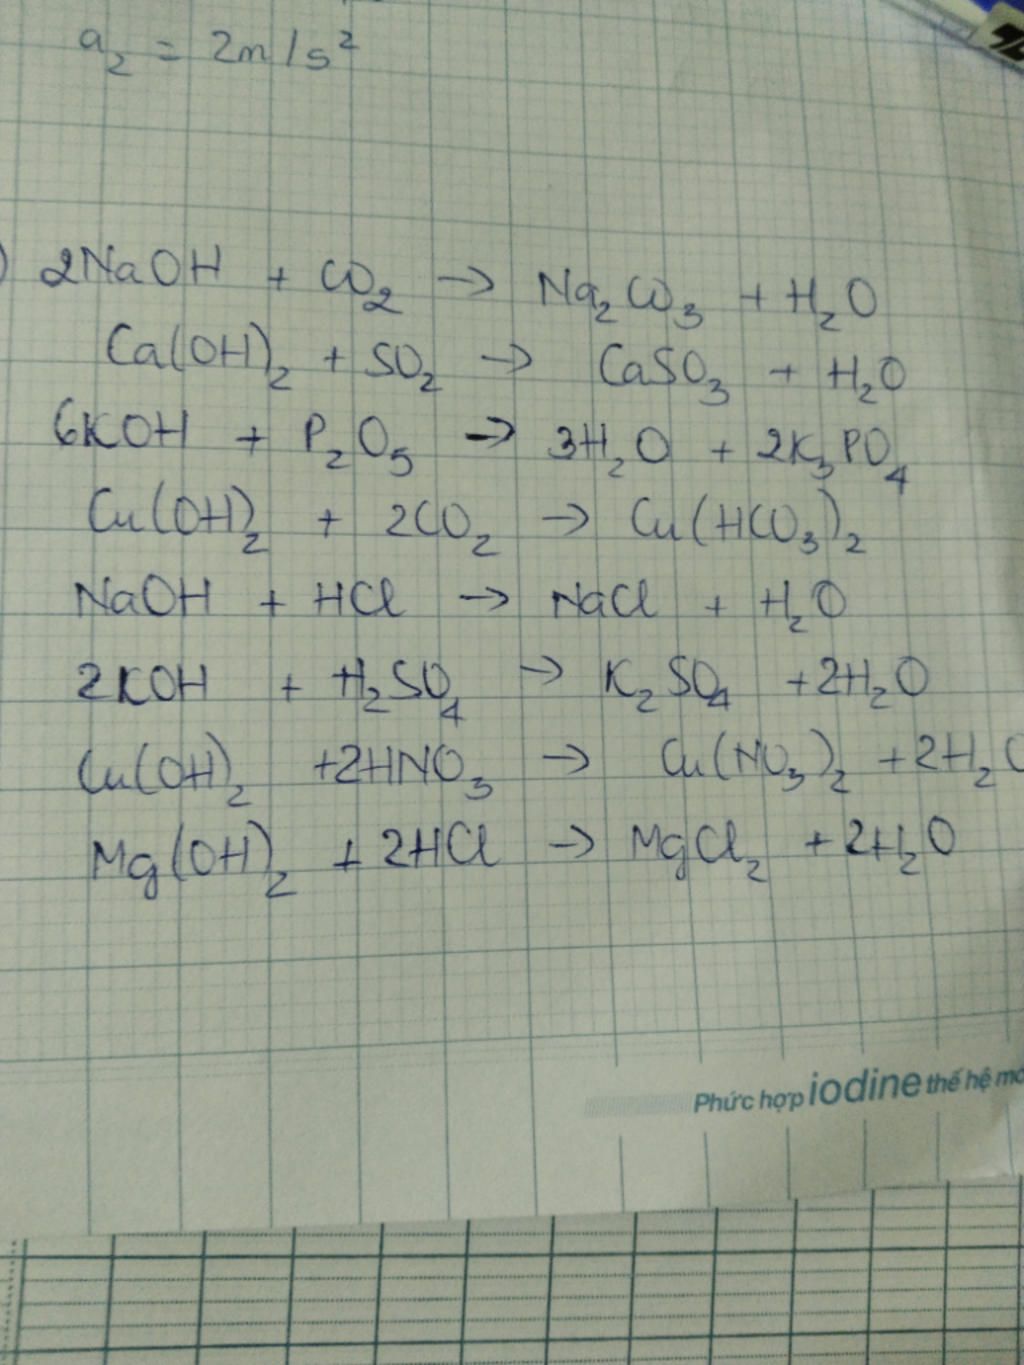 a₂ = 2m/s²
) 2NaOH + CO₂ → Na₂CO₃ + H₂O
Ca(OH)₂ + SO₂ → CaSO₃ + H₂O
6KOH + P₂O₅ → 3H₂O + 2K₃PO₄
Cu(OH)₂ + 2CO₂ → Cu(HCO₃)₂
NaOH + HCl → NaCl + H₂O
2KOH + H₂SO₄ → K₂SO₄ + 2H₂O
Cu(OH)₂ + 2HNO₃ → Cu(NO₃)₂ + 2H₂O
Mg(OH)₂ + 2HCl → MgCl₂ + 2H₂O
Phức hợp iodine thế hệ